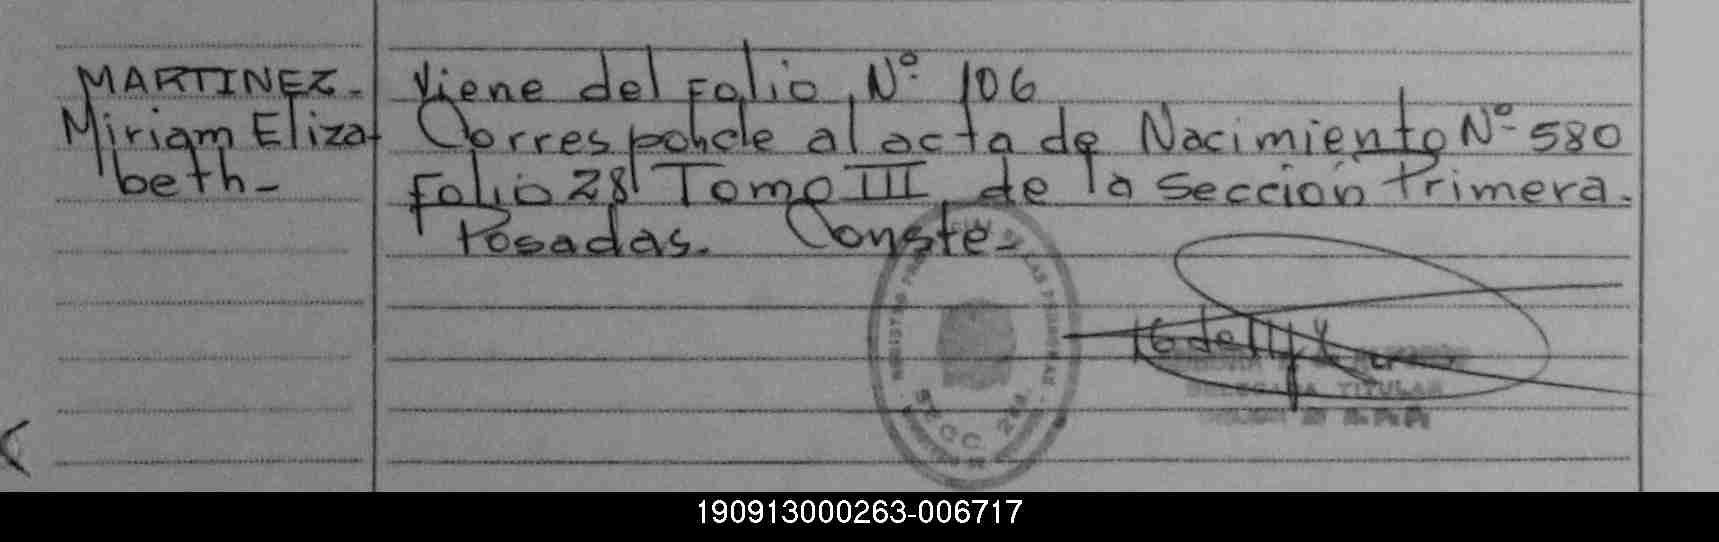 MARTINEZ-
Miriam Eliza
beth-
Viene del Folio Nº 106
Corresponde al acta de Nacimiento Nº 580
Folio 28 Tomo III de la Sección Primera.
Posadas. Conste-
SECC. 2da
TITULAR
190913000263-006717